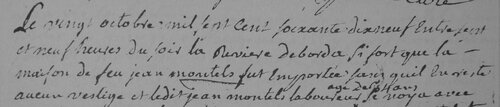 Le vingt octobre mil sept Cent soixante dixneuf Entre sept
et neuf heures du soir la Riviere deborda si fort que la
maison de feu jean montels fut Emportée sans quil En reste
aucun vestige et ledit jean montels laboureur se noya avec
agé de 64 ans